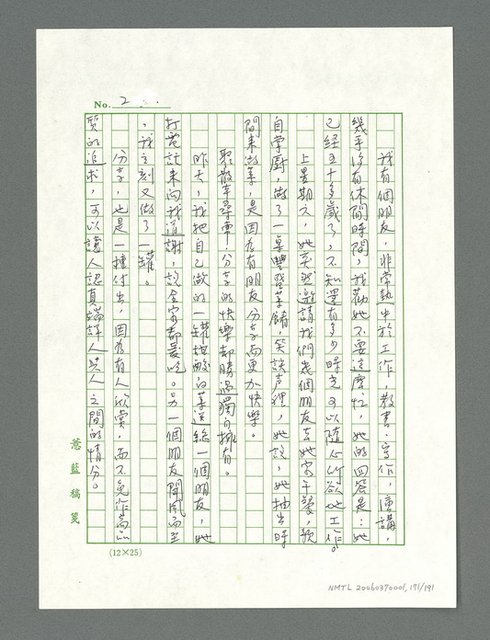 No. 2
我有個朋友，非常熱中於工作，教書、寫作、演講，
幾乎沒有休閒時間，我勸她不要這麼忙，她的回答是：她
已經五十多歲了，不知還有多少時光可以隨心所欲地工作。
上星期六，她突然邀請我們幾個朋友去她家午餐，親
自掌廚，做了一桌豐盛菜餚，笑談聲裡，她說，她抽出時
間來做菜，是因為有朋友分享而更加快樂。
聚散本尋常！分享的快樂卻勝過獨自擁有。
昨天，我把自己做的一罐甜酸的菜送給一個朋友，她
打電話來向我道謝，說全家都愛吃。另一個朋友聞風而至
，我立刻又做了一罐。
分享，也是一種付出，因為有人欣賞，而不免作高品
質的追求，可以讓人認真端詳人與人之間的情分。
慧藍稿箋
(12×25)
NMTL 20060370001, 191/191